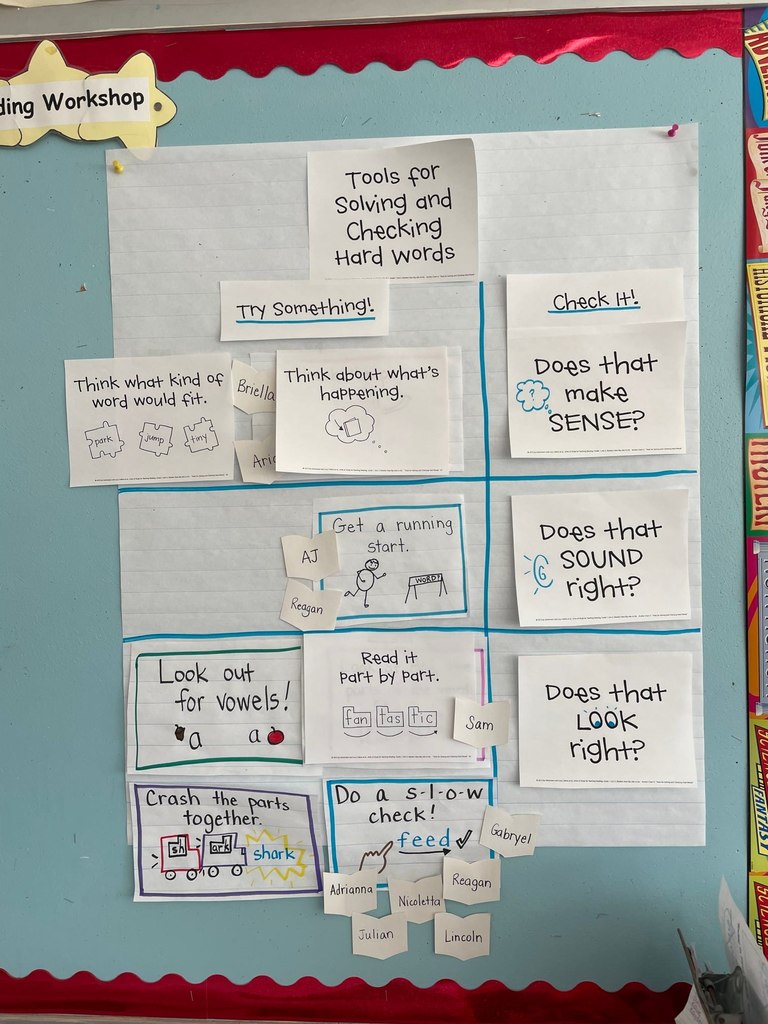 ding Workshop
Tools for
Solving and
Checking
Hard Words
Try Something!
Check It!
Think what kind of
word would fit.
park
jump
tiny
Briella
Aria
Think about what's
happening.
Does that
make
SENSE?
Get a running
start.
WORD!
AJ
Reagan
Does that
SOUND
right?
Look out
for vowels!
a
a
Read it
part by part.
fan tas tic
Sam
Does that
LOOK
right?
Crash the parts
together.
sh ark shark
Do a s-l-o-w
check!
feed
Gabryel
Adrianna
Nicoletta
Reagan
Julian
Lincoln
FANTASY